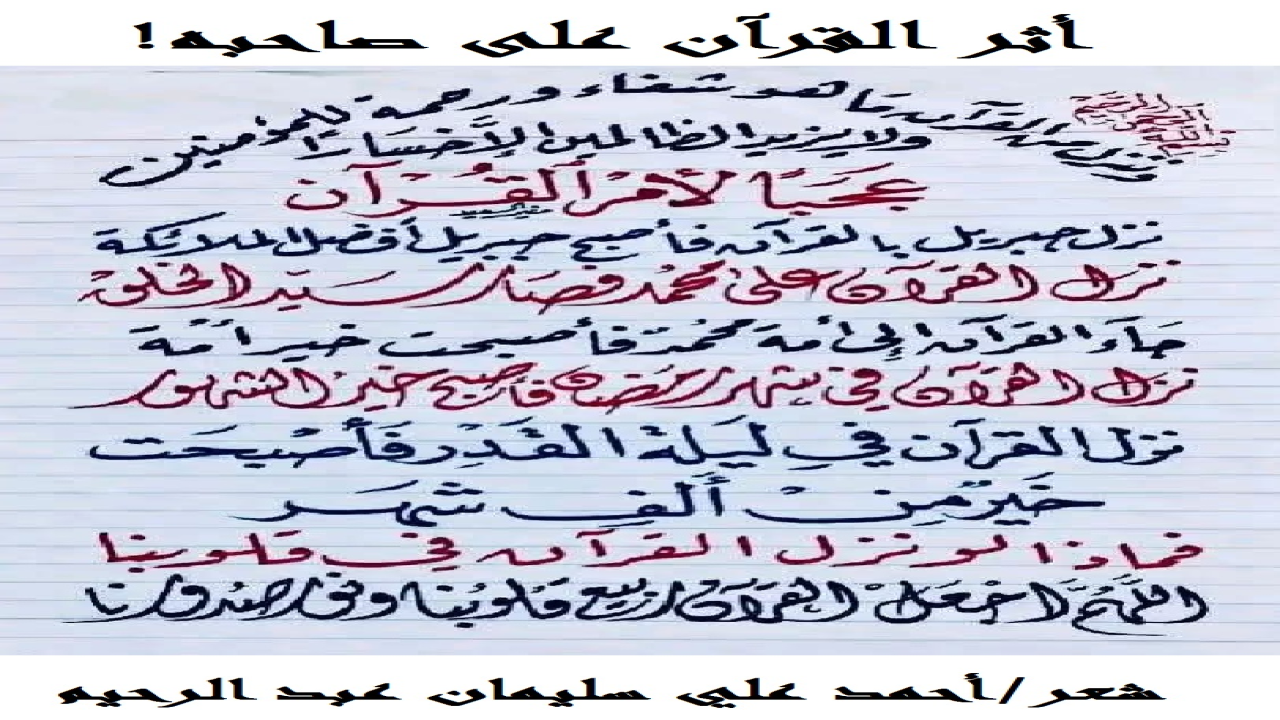 أثر القرآن على صاحبه!
بسم الله الرحمن الرحيم
وننزل من القرآن ما هو شفاء ورحمة للمؤمنين
ولا يزيد الظالمين إلا خسارا
عجبًا لأمر القرآن
نزل جبريل بالقرآن فأصبح جبريل أفضل الملائكة
نزل القرآن على محمد فصار سيد الخلق
جاء القرآن إلى أمة محمد فأصبحت خير أمة
نزل القرآن في شهر رمضان فأصبح خير الشهور
نزل القرآن في ليلة القدر فأصبحت
خير من ألف شهر
فماذا لو نزل القرآن في قلوبنا
اللهم اجعل القرآن ربيع قلوبنا ونور صدورنا
شعر/أحمد علي سليمان عبد الرحيم